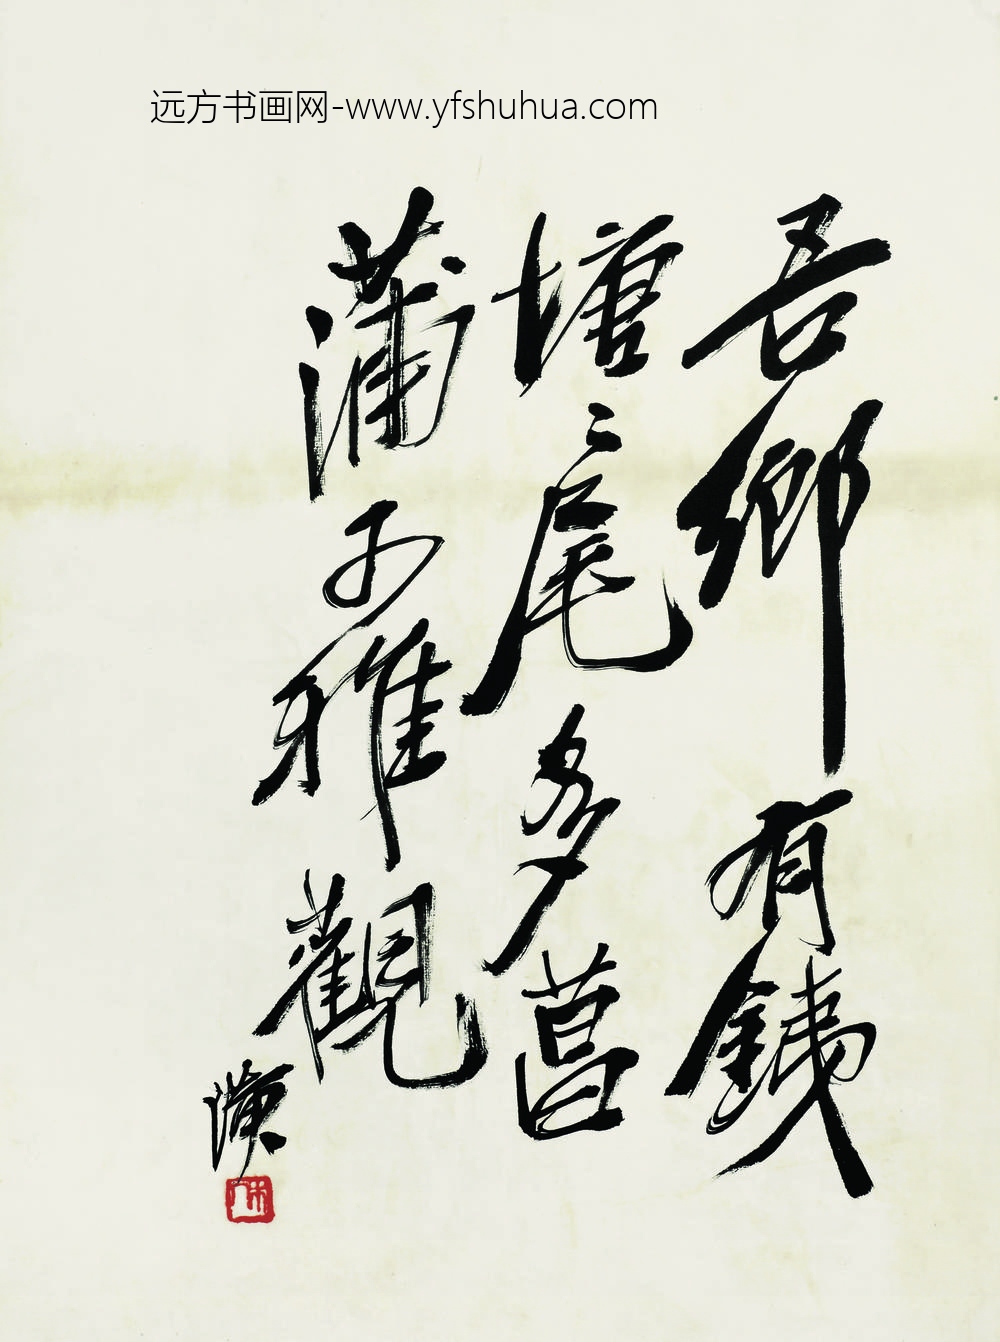 远方书画网-www.yfshuhua.com
吾鄉有銕
塘〻尾多菖
蒲子雅觀
璜
木人